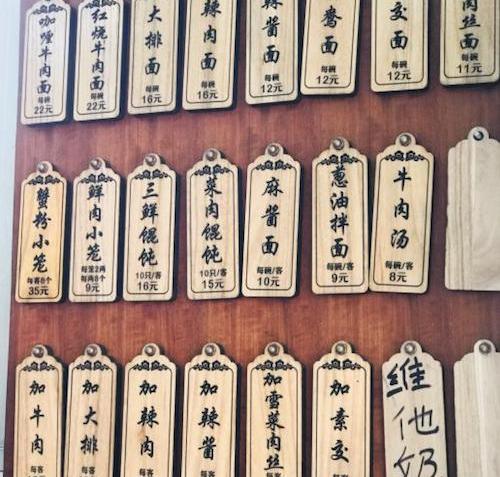 咖喱牛肉面
每碗
22元
红烧牛肉面
每碗
22元
大排面
每碗
16元
辣肉面
每碗
16元
辣酱面
每碗
12元
鸯面
每碗
12元
交面
每碗
12元
肉丝面
每碗
11元
蟹粉小笼
每客8个
35元
鲜肉小笼
每笼2两
每两8个
9元
三鲜馄饨
10只/客
16元
菜肉馄饨
10只/客
15元
麻酱面
每碗/客
10元
葱油拌面
每碗/客
9元
牛肉汤
每碗/客
8元
加牛肉
每客
加大排
每客
加辣肉
每客
加辣酱
每客
加雪菜肉丝
加素交
每客
维他奶